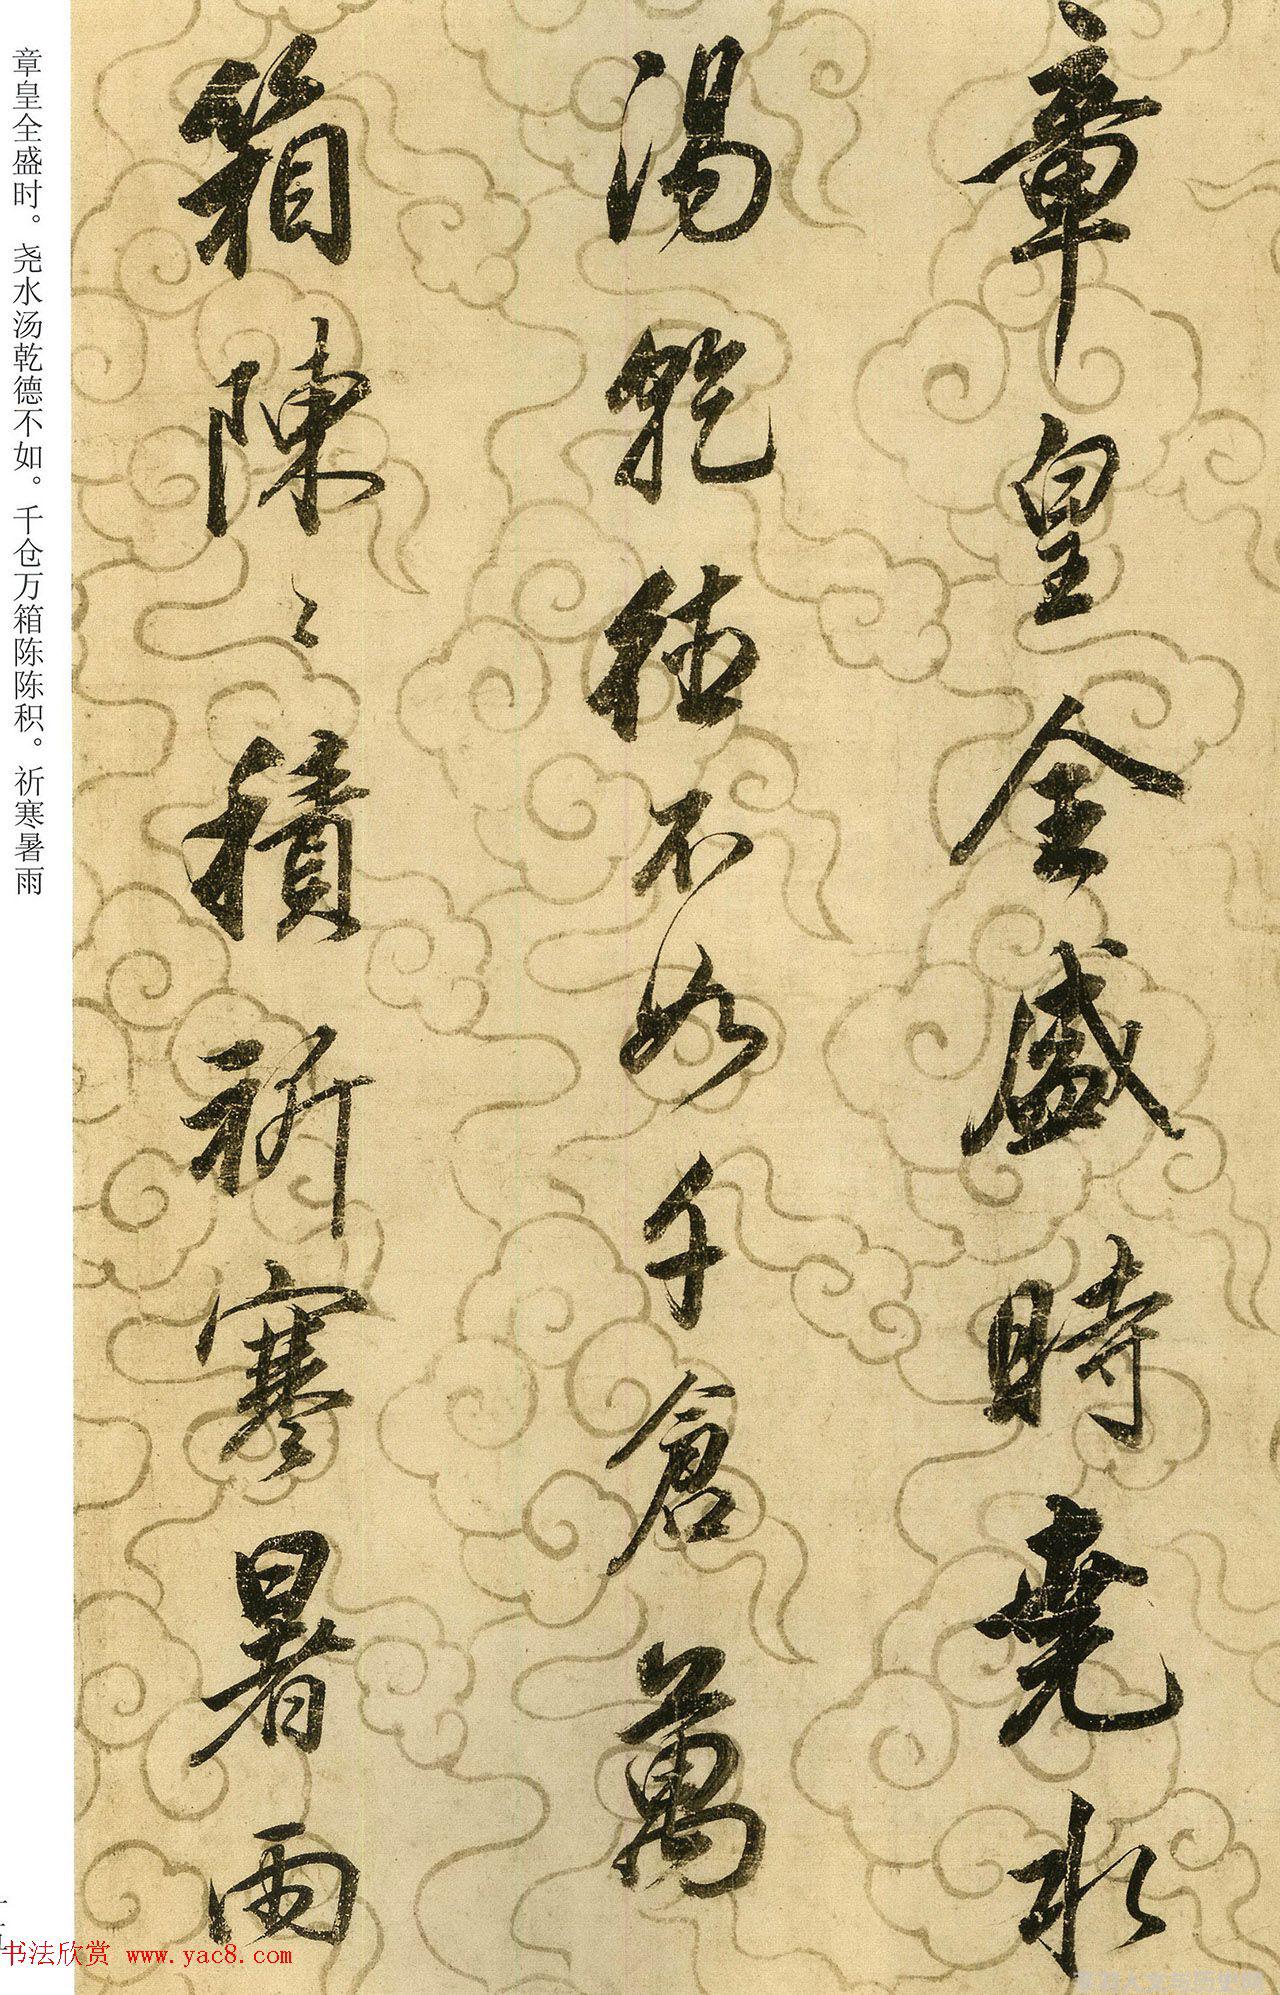 章皇全盛時堯水
湯乾德不如千倉萬
箱陳〻積祈寒暑雨
章皇全盛时。尧水汤乾德不如。千仓万箱陈陈积。祈寒暑雨
书法欣赏 www.yac8.com